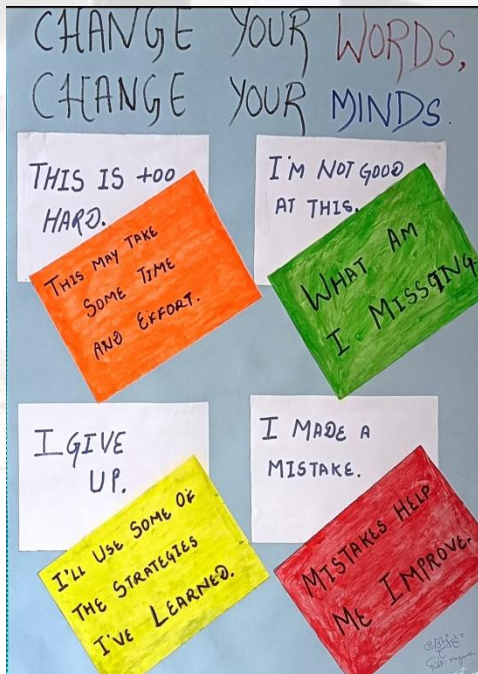 CHANGE YOUR WORDS,
CHANGE YOUR MINDS.
THIS IS too
HARD.
THIS MAY TAKE
SOME TIME
AND EFFORT.
I'M NOT GOOD
AT THIS.
WHAT AM
I MISSING.
I GIVE
UP.
I'LL USE SOME OF
THE STRATEGIES
I'VE LEARNED.
I MADE A
MISTAKE.
MISTAKES HELP
ME IMPROVE.